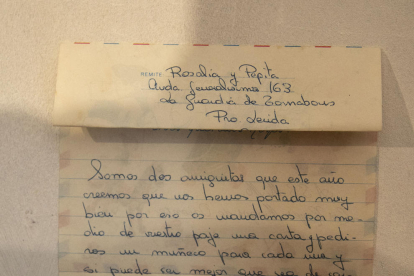 REMITE: Rosalia y Pepita
Avda Generalisimo 163
la Guardia de Tornabous
Pro Lerida
Somos dos amiguitas que este año
creemos que nos hemos portado muy
bien por eso os mandamos por me-
dio de vuestro paje una carta y pedi-
ros un muñeco para cada una y
si puede ser mejor que sea de